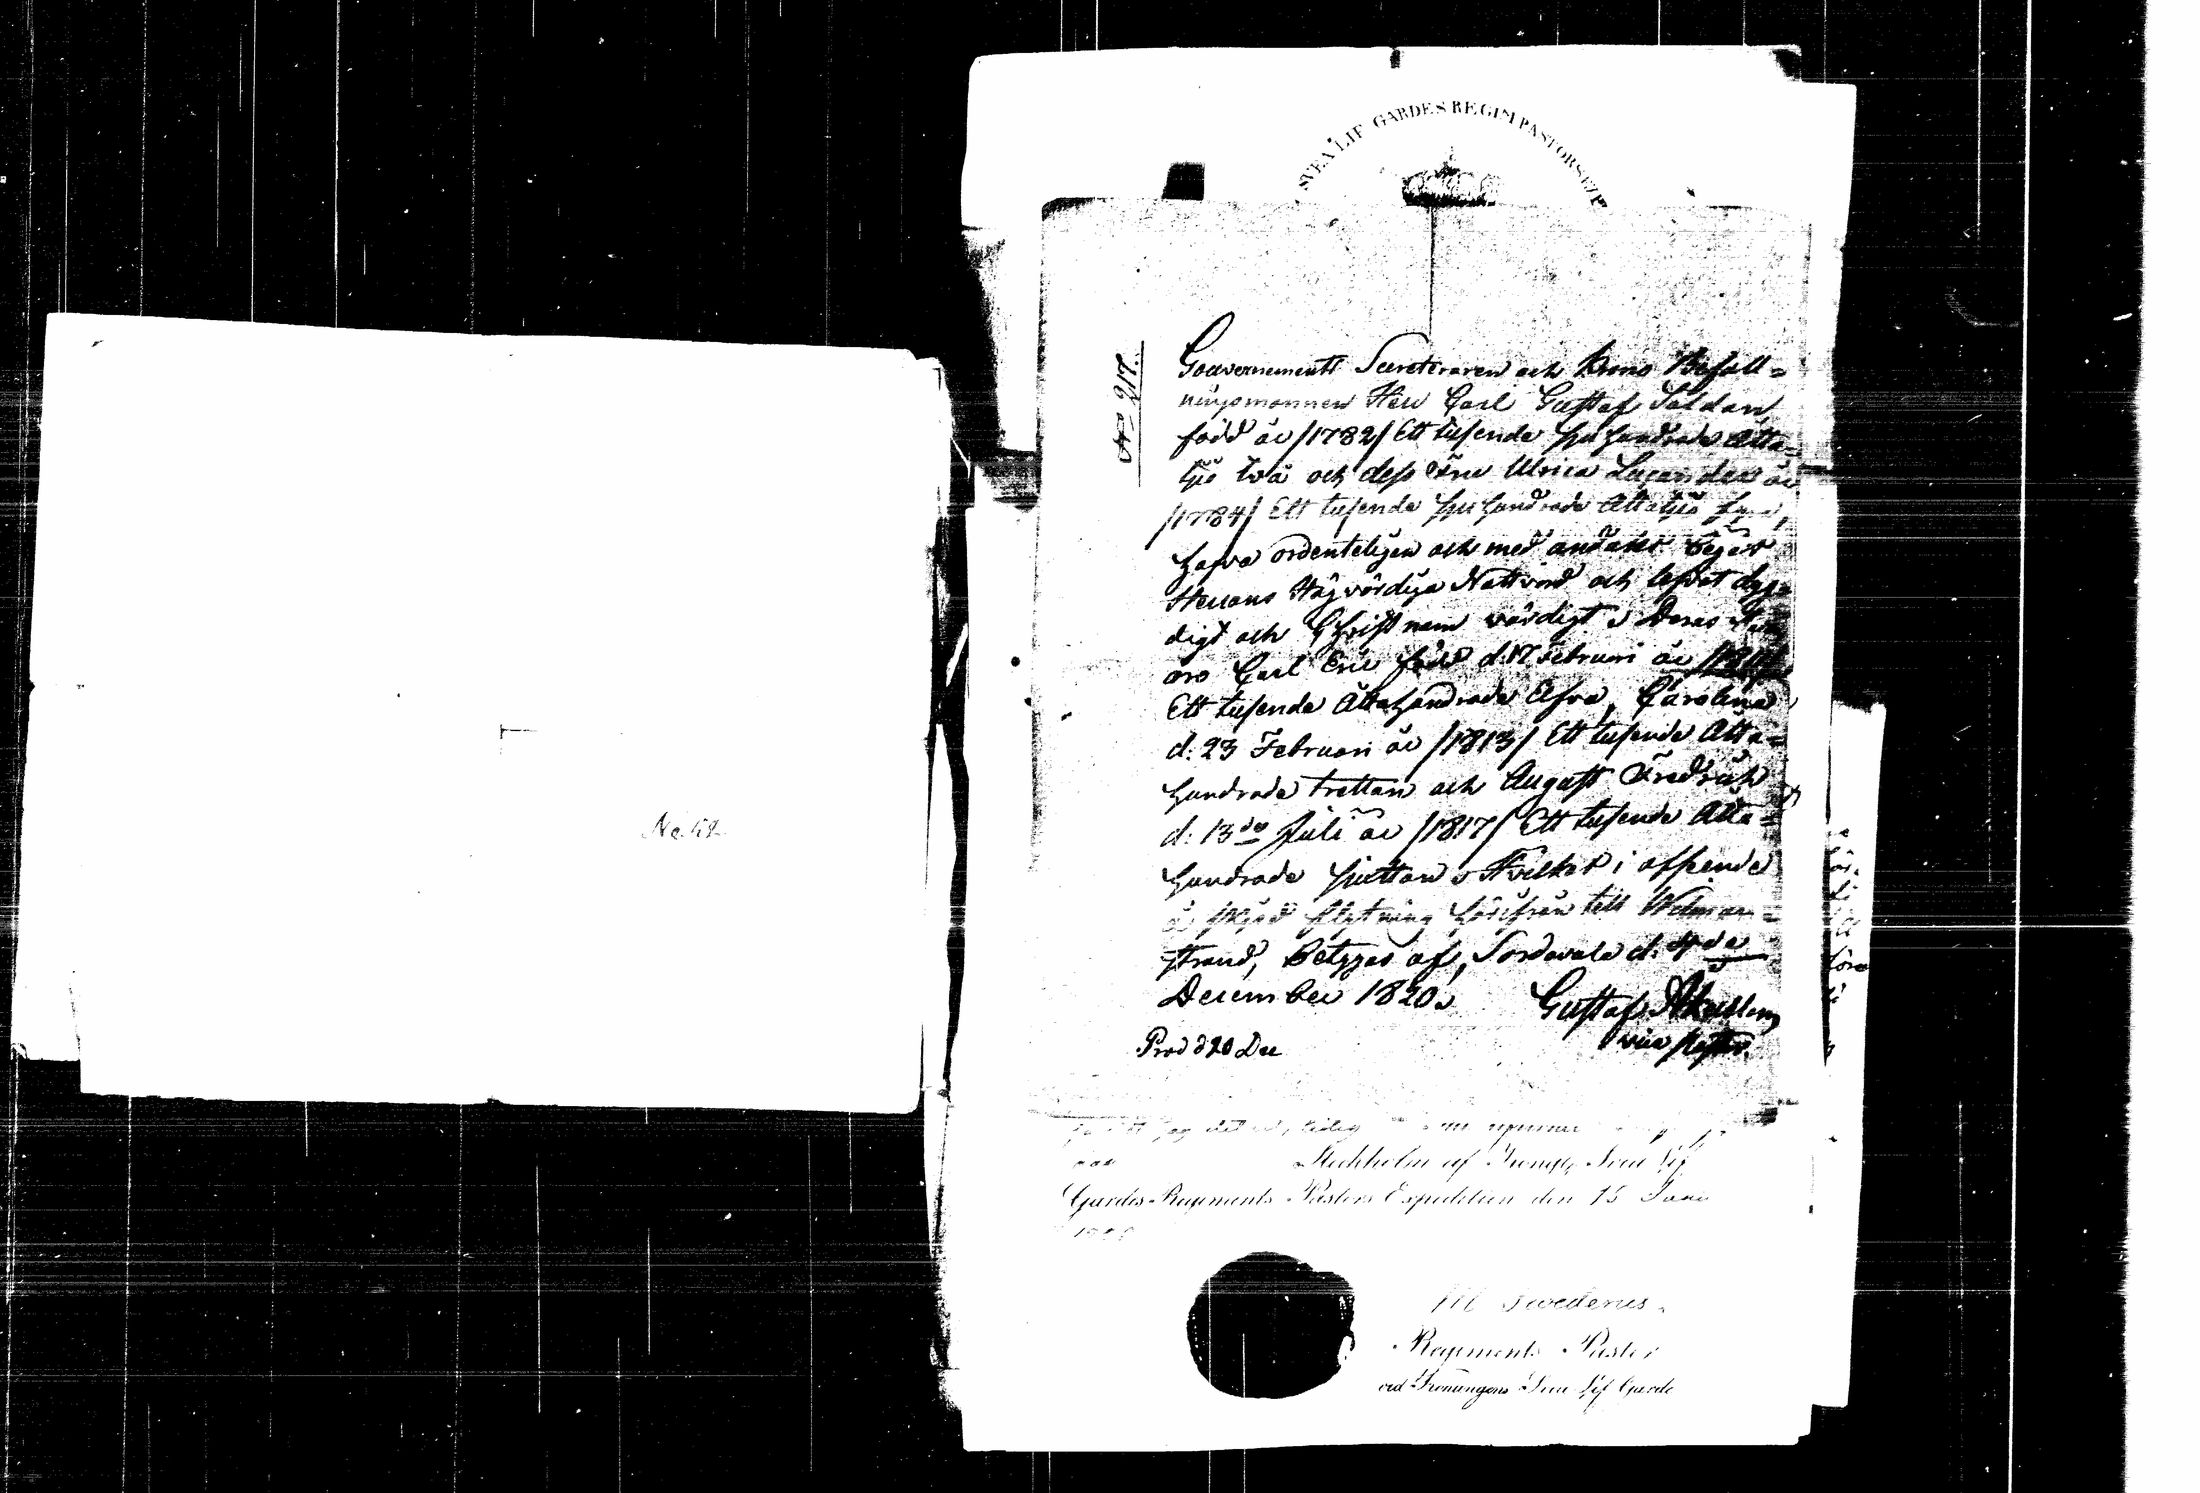 No 52
SVEA LIF GARDES REGIM PASTORS EXP
No 217.
Gouvernements Secreteraren och Krono Befall=
ningsmannen Herr Carl Gustaf Soldan
född år /1782/ Ett tusende sjuhundrade Åtta=
tjo två och dess Fru Ulrica Lucander år
/1784/ Ett tusende sjuhundrade Åttatjo fyra,
hafva ordenteligen och med andakt begått
Herrans Högvördiga Nattvard och lefvat dyg=
digt och Christnom värdigt. Deras
äro Carl Eric född d: 17 Februari år /1811/
Ett tusende Åttahundrade Elfva, Carolina
d: 23 Februari år /1813/ Ett tusende Åtta=
hundrade trettan och August Fredrich
d: 13de Juli år /1817/ Ett tusende Åtta=
hundrade sjuttan. Hvilket i afseende
å skjedd flytning härifrån till Wilman=
strand, betygas af, Sordavala d: 4de
December 1820.
Gustaf
vice pastor.
Prod d 20 Dec
jag
Stockholm af Kongl. Svea Lif
Gardes Regiments Pastors Expedition den 15 Juni
Swederus
Regiments Pastor
vid Konungens Svea Lif Garde